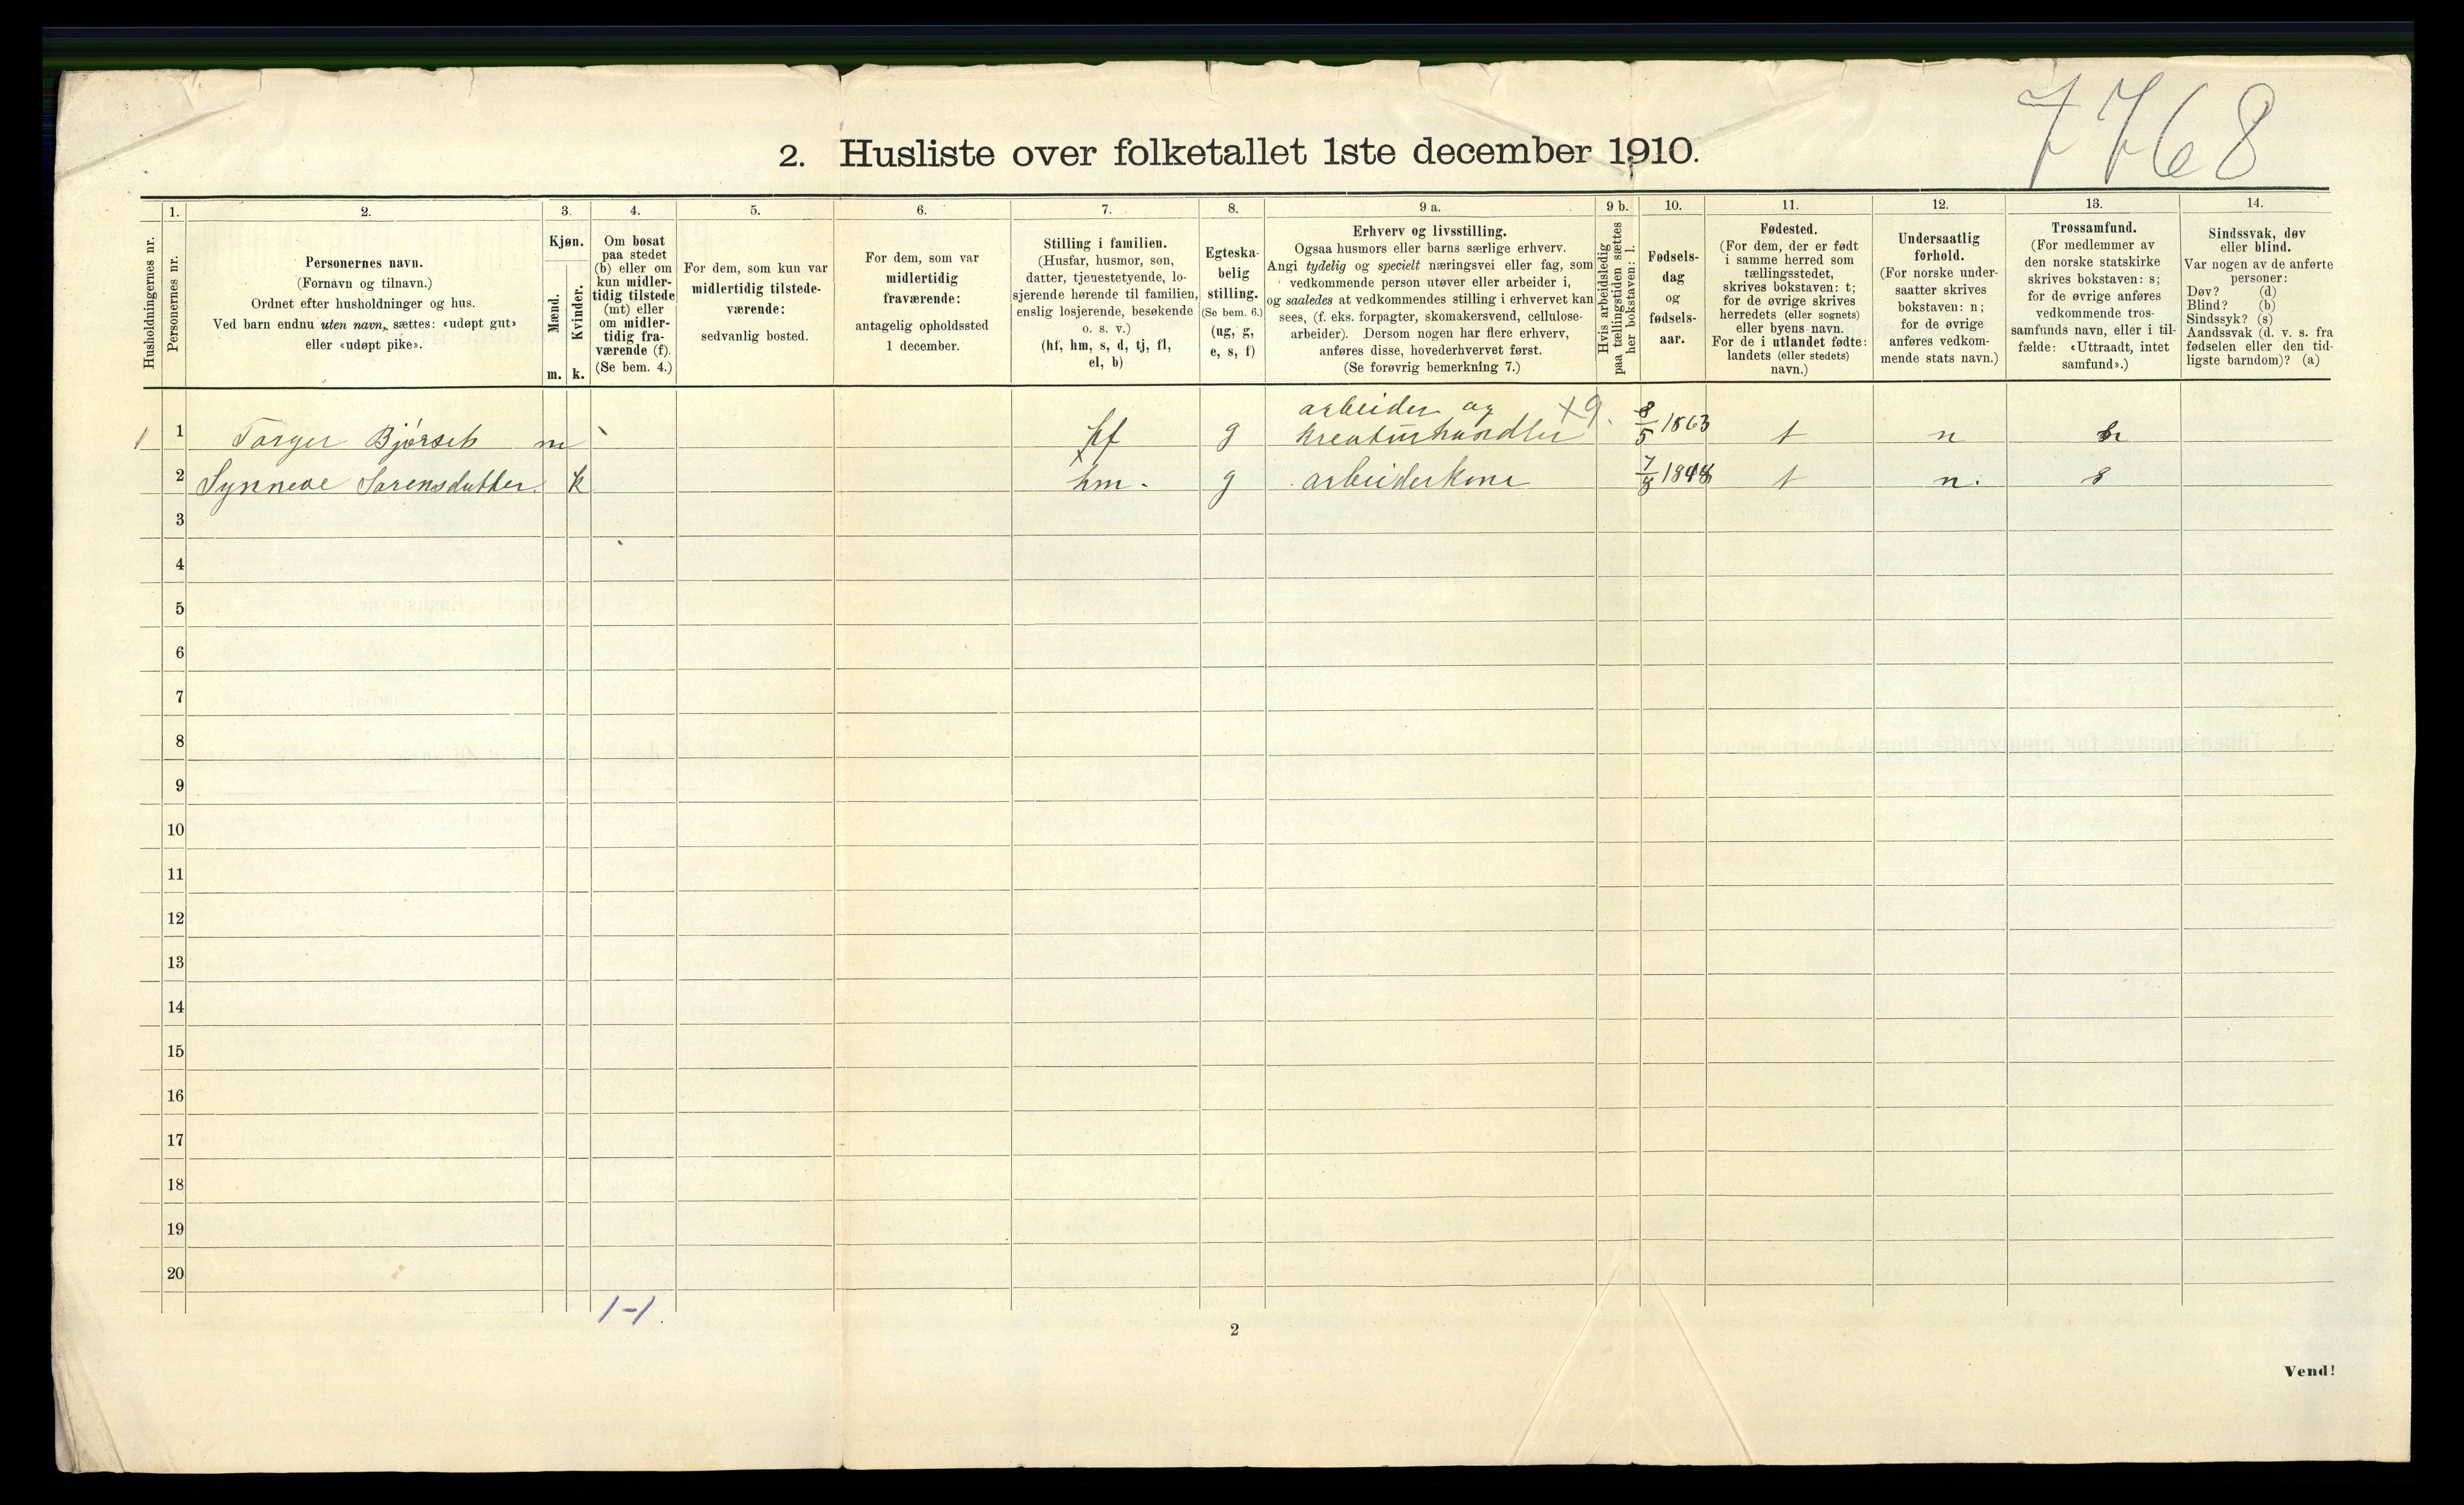 7768
2. Husliste over folketallet 1ste december 1910.
Husholdningernes nr.
1.
Personernes nr.
2.
Personernes navn.
(Fornavn og tilnavn.)
Ordnet efter husholdninger og hus.
Ved barn endnu uten navn, sættes: «udøpt gut»
eller «udøpt pike».
3.
Kjøn.
Mænd.
Kvinder.
m. k.
4.
Om bosat
paa stedet
(b) eller om
kun midler-
tidig tilstede
(mt) eller
om midler-
tidig fra-
værende (f).
(Se bem. 4.)
5.
For dem, som kun var
midlertidig tilstede-
værende:
sedvanlig bosted.
6.
For dem, som var
midlertidig
fraværende:
antagelig opholdssted
1 december.
7.
Stilling i familien.
(Husfar, husmor, søn,
datter, tjenestetyende, lo-
sjerende hørende til familien,
enslig losjerende, besøkende
o. s. v.)
(hf, hm, s, d, tj, fl,
el, b)
8.
Egteska-
belig
stilling.
(Se bem. 6.)
(ug, g,
e, s, f)
9 a.
Erhverv og livsstilling.
Ogsaa husmors eller barns særlige erhverv.
Angi tydelig og specielt næringsvei eller fag, som
vedkommende person utøver eller arbeider i,
og saaledes at vedkommendes stilling i erhvervet kan
sees, (f. eks. forpagter, skomakersvend, cellulose-
arbeider). Dersom nogen har flere erhverv,
anføres disse, hovederhvervet først.
(Se forøvrig bemerkning 7.)
9 b.
Hvis arbeidsledig
paa tællingstiden sættes
her bokstaven: l.
10.
Fødsels-
dag
og
fødsels-
aar.
11.
Fødested.
(For dem, der er født
i samme herred som
tællingsstedet,
skrives bokstaven: t;
for de øvrige skrives
herredets (eller sognets)
eller byens navn.
For de i utlandet fødte:
landets (eller stedets)
navn.)
12.
Undersaatlig
forhold.
(For norske under-
saatter skrives
bokstaven: n;
for de øvrige
anføres vedkom-
mende stats navn.)
13.
Trossamfund.
(For medlemmer av
den norske statskirke
skrives bokstaven: s;
for de øvrige anføres
vedkommende tros-
samfunds navn, eller i til-
fælde: «Uttraadt, intet
samfund».)
14.
Sindssvak, døv
eller blind.
Var nogen av de anførte
personer:
Døv? (d)
Blind? (b)
Sindssyk? (s)
Aandssvak (d. v. s. fra
fødselen eller den tid-
ligste barndom)? (a)
arbeider og x9
1 1 Torger Bjørseth m hf g kreaturhandler 8/5 1863 t n
2 Synneve Sørensdatter k hm g arbeiderkone 7/8 1848 t n. s
3
4
5
6
7
8
9
10
11
12
13
14
15
16
17
18
19
20
1-1
2
Vend!